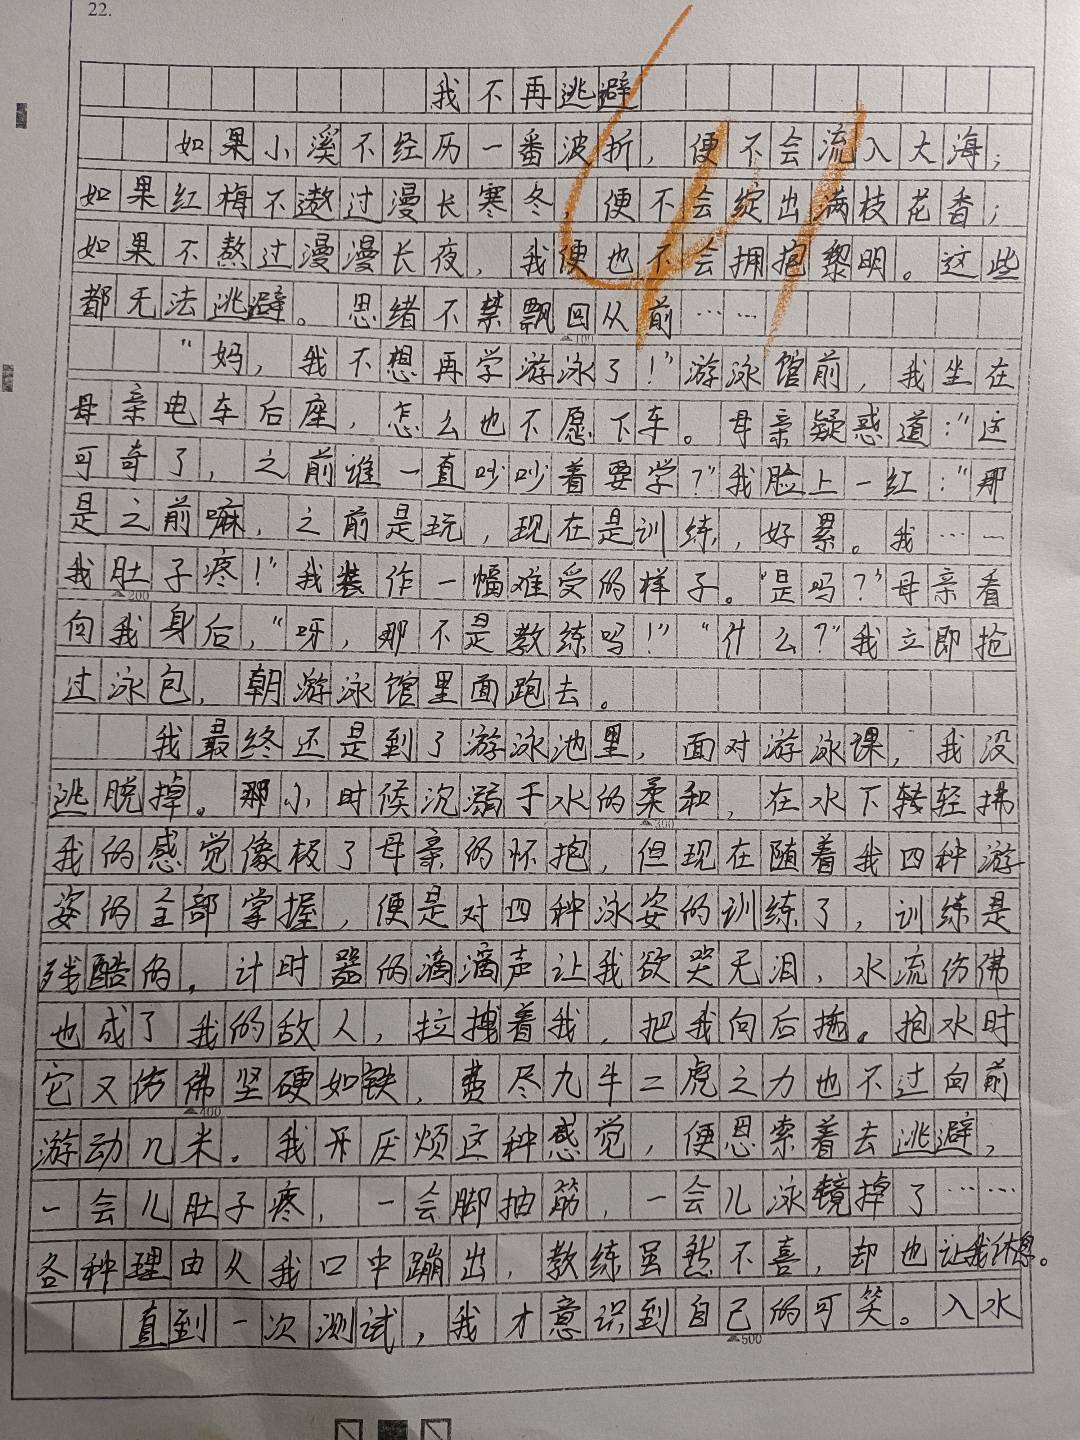 22.
我不再逃避
如果小溪不经历一番波折，便不会流入大海；
如果红梅不遨过漫长寒冬，便不会绽出满枝花香；
如果不熬过漫漫长夜，我便也不会拥抱黎明。这些
都无法逃避。思绪不禁飘回从前……
100
“妈，我不想再学游泳了！”游泳馆前，我坐在
母亲电车后座，怎么也不愿下车。母亲疑惑道：“这
可奇了，之前谁一直吵吵着要学？”我脸上一红：“那
是之前嘛，之前是玩，现在是训练，好累。我……
我肚子疼！”我装作一幅难受的样子。“是吗？”母亲看
200
向我身后，“呀，那不是教练吗！”“什么？”我立即抢
过泳包，朝游泳馆里面跑去。
我最终还是到了游泳池里，面对游泳课，我没
逃脱掉。那小时候沉溺于水的柔和，在水下轻轻拂
300
我的感觉像极了母亲的怀抱，但现在随着我四种游
姿的全部掌握，便是对四种泳姿的训练了，训练是
残酷的。计时器的滴滴声让我欲哭无泪，水流仿佛
也成了我的敌人，拉拽着我，把我向后拖。抱水时
它又仿佛坚硬如铁，费尽九牛二虎之力也不过向前
400
游动几米。我开厌烦这种感觉，便思索着去逃避，
一会儿肚子疼，一会脚抽筋，一会儿泳镜掉了……
各种理由从我口中蹦出，教练虽然不喜，却也让我休息。
直到一次测试，我才意识到自己的可笑。入水
500